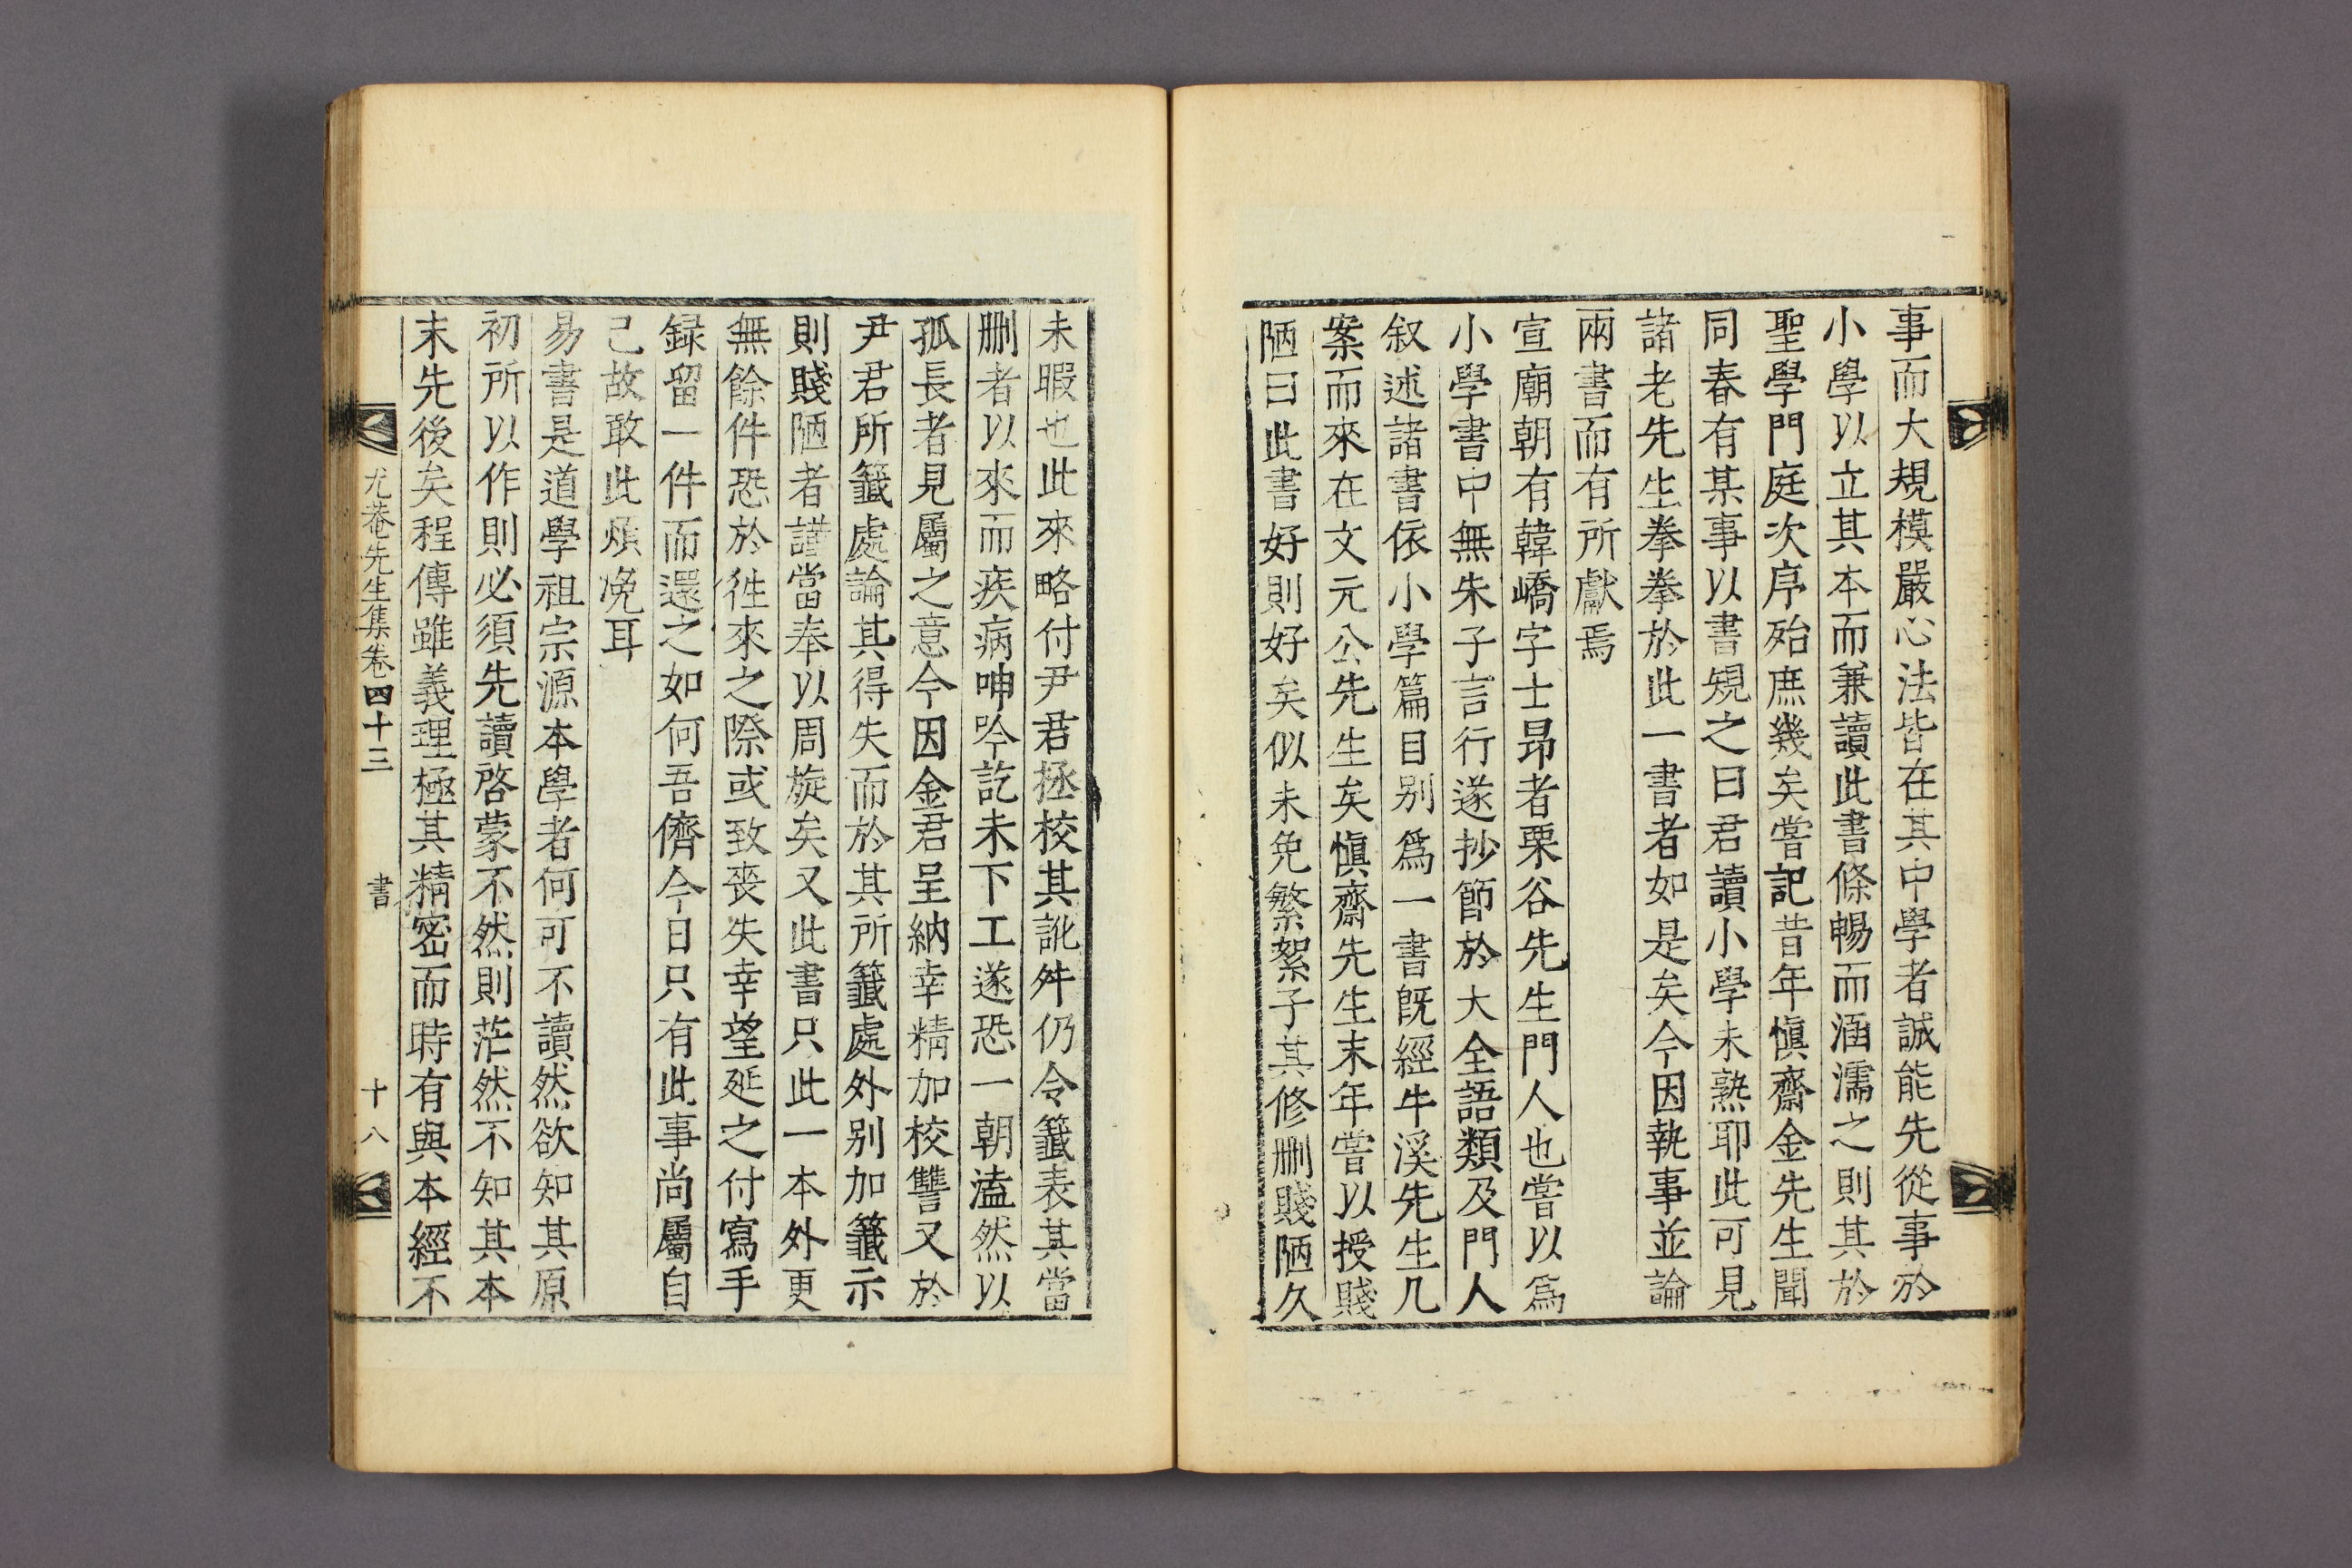 事而大規模嚴心法皆在其中學者誠能先從事於
小學以立其本而兼讀此書條暢而涵濡之則其於
聖學門庭次序殆庶幾矣嘗記昔年愼齋金先生聞
同春有某事以書規之曰君讀小學未熟耶此可見
諸老先生拳拳於此一書者如是矣今因執事並論
兩書而有所獻焉
宣廟朝有韓嶠字士昻者栗谷先生門人也嘗以爲
小學書中無朱子言行遂抄節於大全語類及門人
叙述諸書依小學篇目别爲一書旣經牛溪先生几
案而來在文元公先生矣愼齋先生末年嘗以授賤
陋曰此書好則好矣似未免繁絮子其修刪賤陋久
未暇也此來略付尹君拯校其訛舛仍令籤表其當
刪者以來而疾病呻吟訖未下工遂恐一朝溘然以
孤長者見屬之意今因金君呈納幸精加校讐又於
尹君所籤處論其得失而於其所籤處外别加籤示
則賤陋者謹當奉以周旋矣又此書只此一本外更
無餘件恐於徃來之際或致喪失幸望延之付寫手
録留一件而還之如何吾儕今日只有此事尚屬自
己故敢此煩浼耳
易書是道學祖宗源本學者何可不讀然欲知其原
初所以作則必須先讀啓蒙不然則茫然不知其本
末先後矣程傳雖義理極其精密而時有與本經不
尤菴先生集卷四十三 書 十八